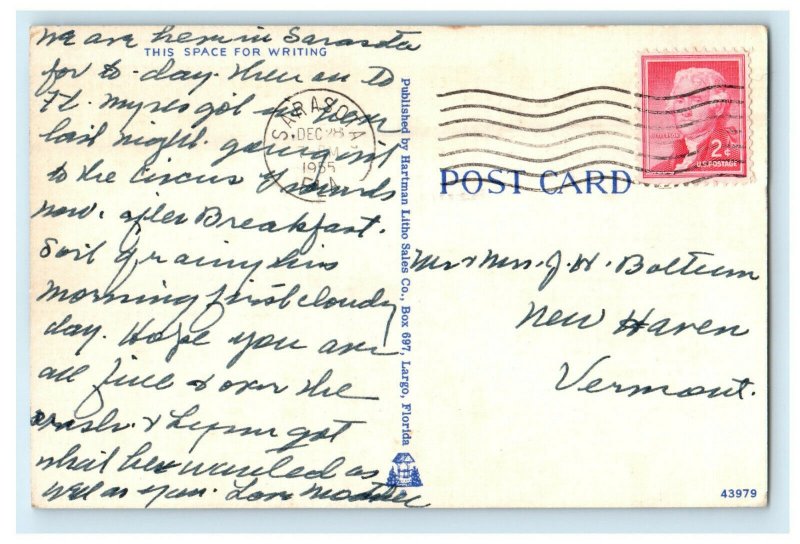 We are here in Sarasota
THIS SPACE FOR WRITING
for to-day. Then on to
Ft. Myres got in here
last night. going out
to the Circus grounds
now. after Breakfast.
Sort of rainy this
morning first cloudy
day. Hope you are
all fine & over the
rush. & Lynn got
what he wanted as
well as you. Love Mother
SARASOTA,
DEC 28
PM
1955
FLA
Published by Hartman Litho Sales Co., Box 697, Largo, Florida
2¢
U.S. POSTAGE
POST CARD
Mr & Mrs. J. H. Boltum
New Haven
Vermont.
43979